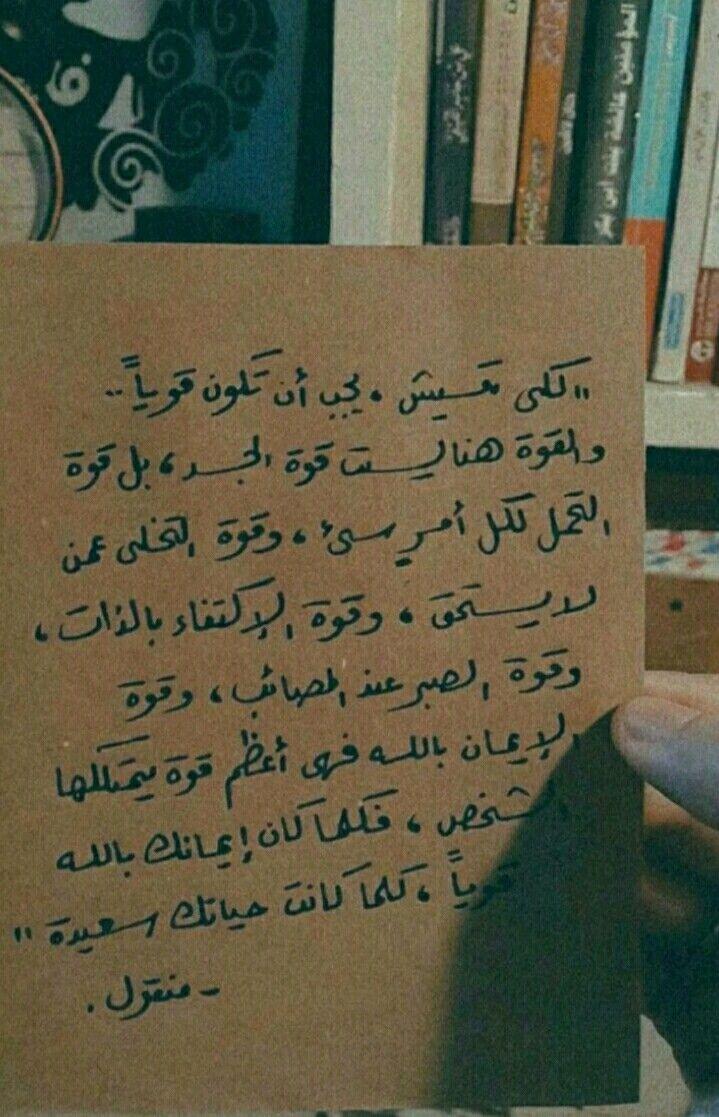 المؤمنين عائشة بنت أبي بكر
"لكى تعيش، يجب أن تكون قوياً..
والقوة هنا ليست قوة الجسد، بل قوة
التحمل لكل أمرٍ سىء، وقوة التخلى عمن
لا يستحق، وقوة الإكتفاء بالذات،
وقوة الصبر عند المصائب، وقوة
الإيمان بالله فهى أعظم قوة يمتلكها
الشخص، فكلما كان إيمانك بالله
قوياً، كلما كانت حياتك سعيدة"
- منقول.